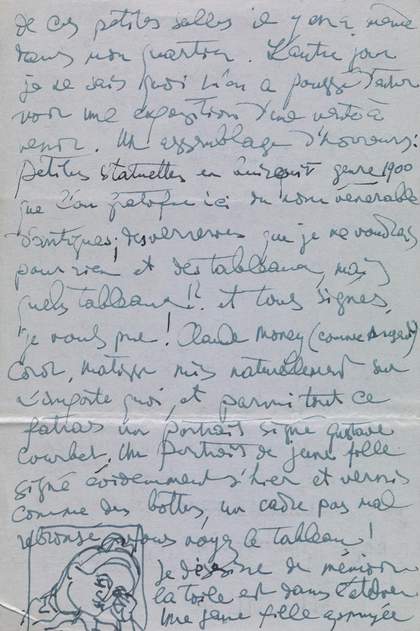 de ces petites salles il y en a même
dans mon quartier. L'autre jour
je ne sais quoi m'en a poussé d'aller
voir une exposition d'une vente à
venir. Un assemblage d'horreurs:
petites statuettes en genre 1900
que l'on gratifie ici du nom vénérable
d'antiques; des verreries que je ne voudrais
pour rien et des tableaux, mais
quels tableaux!! et tous signés,
je vous prie! Claude Money (comme argent)
Corot, mis naturellement sur
n'importe quoi, et parmi tout ce
fatras un portrait signé Gustave
Courbet. Un portrait de jeune fille
signé évidemment d'hier et verni
comme des bottes, un cadre pas mal
vous voyez le tableau!
Je dessine de mémoire
la toile est dans
Une jeune fille appuyée